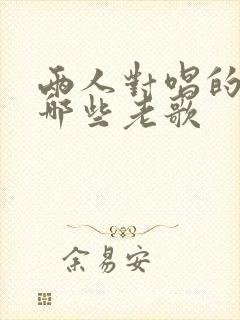 兩人對唱的
那些老歌
余易安